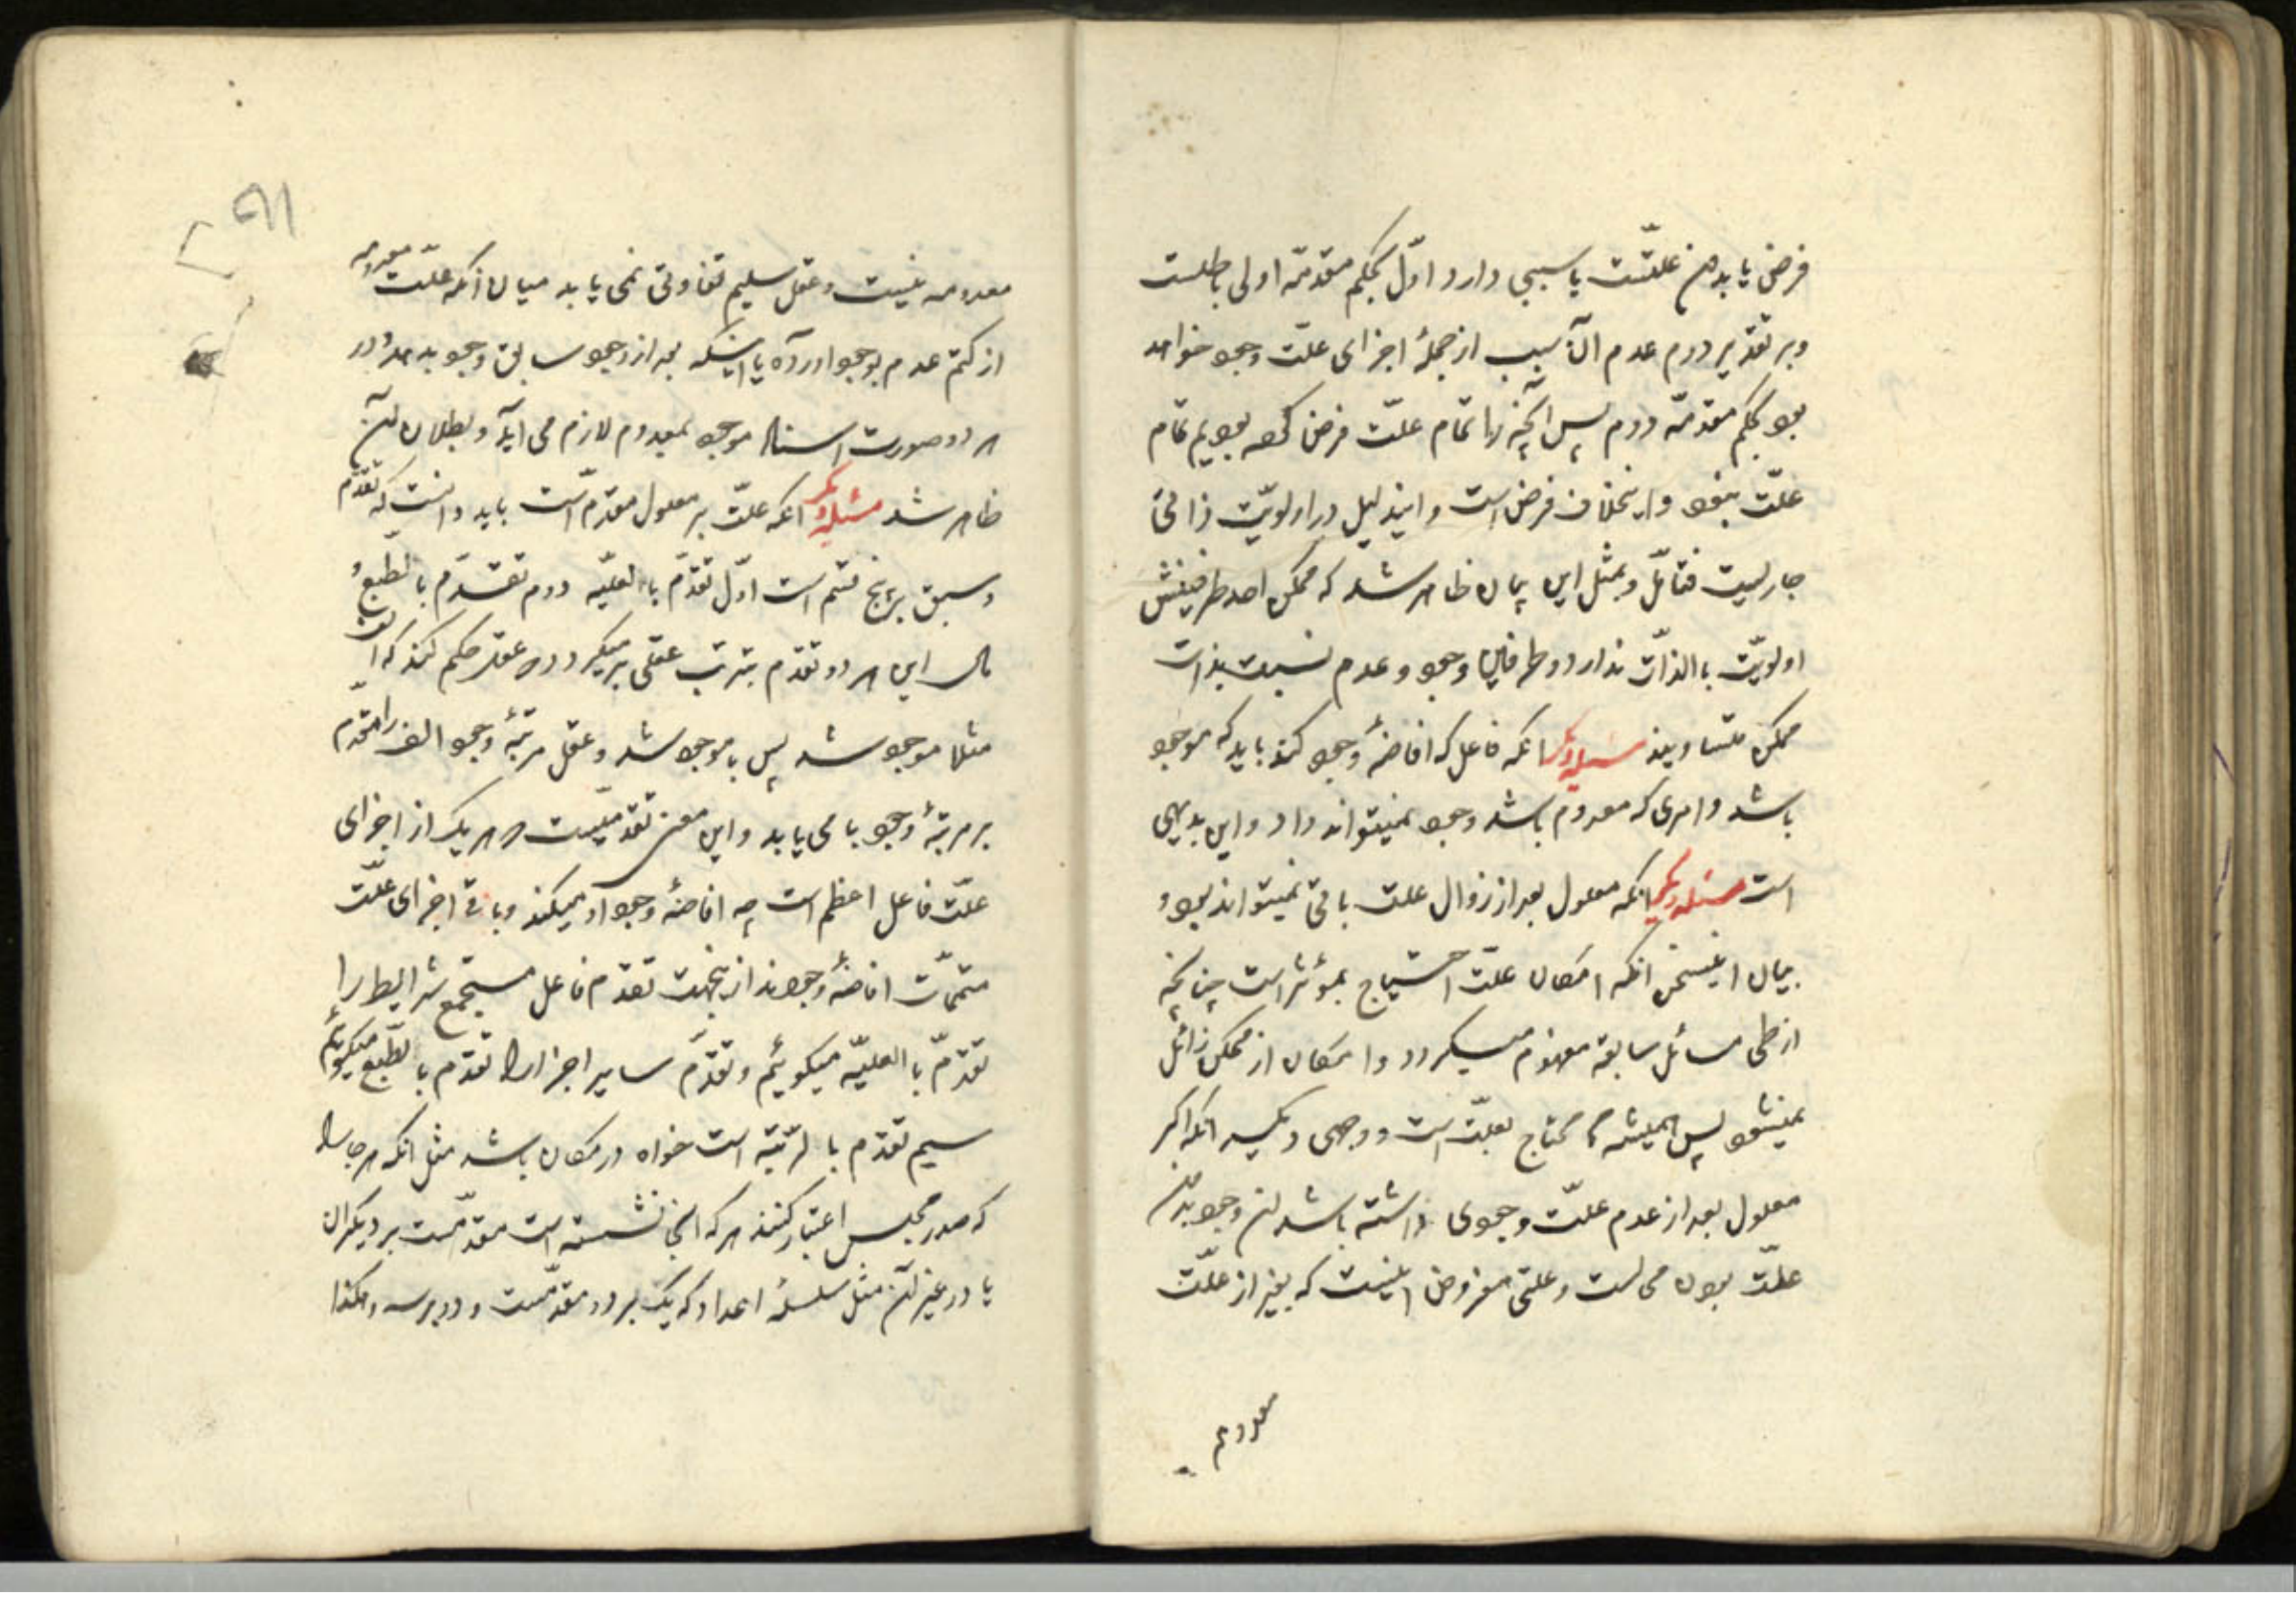 فرض یابد همن علتست یا سببی دارد اوّل بحکم مقدمّه اولی باطلست
وبر تقدیر دوم عدم آن سبب از جملهٔ اجزای علّت وجود خواهد
بود بحکم مقدمّه دوم پس آنچه را تمام علّت فرض کرده بودیم تمام
علّت نبود و این خلاف فرض است و ایندلیل در اولویّت ذاتی
جاریست فتامّل و بمثل این بیان ظاهر شد که ممکن احد طرفینش
اولویّت باالذاّت ندارد و طرفین وجود و عدم نسبت بذات
ممکن متساویند مسئله دیگر انکه فاعل که افاضهٔ وجود کند باید که موجود
باشد و امری که معدوم باشد وجود نمیتواند داد و این بدیهی
است مسئله دیگر انکه معلول بعد از زوال علت باقی نمیتواند بود و
بیان اینسخن انکه امکان علّت احتیاج بمؤثر است چنانچه
از طی مسائل سابقه مفهوم میگردد و امکان از ممکن زائل
نمیشود پس همیشه محتاج بعلّت است و وجهی دیگر انکه اگر
معلول بعد از عدم علّت وجودی داشته باشد آن وجود بدون
علّت بودن محالست و علتی مفروض اینست که بغیر از علّت
معدوم
معدومه نیست و عقل سلیم تفاوتی نمی یابد میان انکه علّت معدومه
از کتم عدم بوجود اورد یا اینکه بعد از وجود سابق وجود بدهد و در
هر دو صورت استناد موجود بمعدوم لازم می آید و بطلان آن
ظاهر شد مسئله دیگر انکه علّت بر معلول مقدم است باید دانست که تقدّم
و سبق بر پنج قسم است اوّل تقدّم باالعلیّه دوم تقدّم بالطّبع و
مال این هر دو تقدم بترتب عقلی بر میگردد که عقل حکم کند که الف
مثلا موجود شد پس با موجود شد و عقل مرتبهٔ وجود الف را مقدّم
بر مرتبهٔ وجود با می یابد و این معنی تقدمیست و هر یک از اجزای
علّت فاعل اعظم است چه افاضهٔ وجود او میکند و باقی اجزای علّت
متممّات افاضهٔ وجودند از ینجهت تقدم فاعل مستجمع شرایط را
تقدمّ باالعلیّه میگوئیم و تقدّم سایر اجزا را تقدّم بالطّبع میگوئیم
سیم تقدّم بالرّتبة است خواه در مکان باشد مثل انکه هر جا را
که صدر مجلس اعتبار کنند هر که انجا نشسته است مقدّمست بر دیگران
یا در غیر آن مثل سلسلهٔ اعداد که یک بر دو مقدّمست و دو بر سه و هکذا